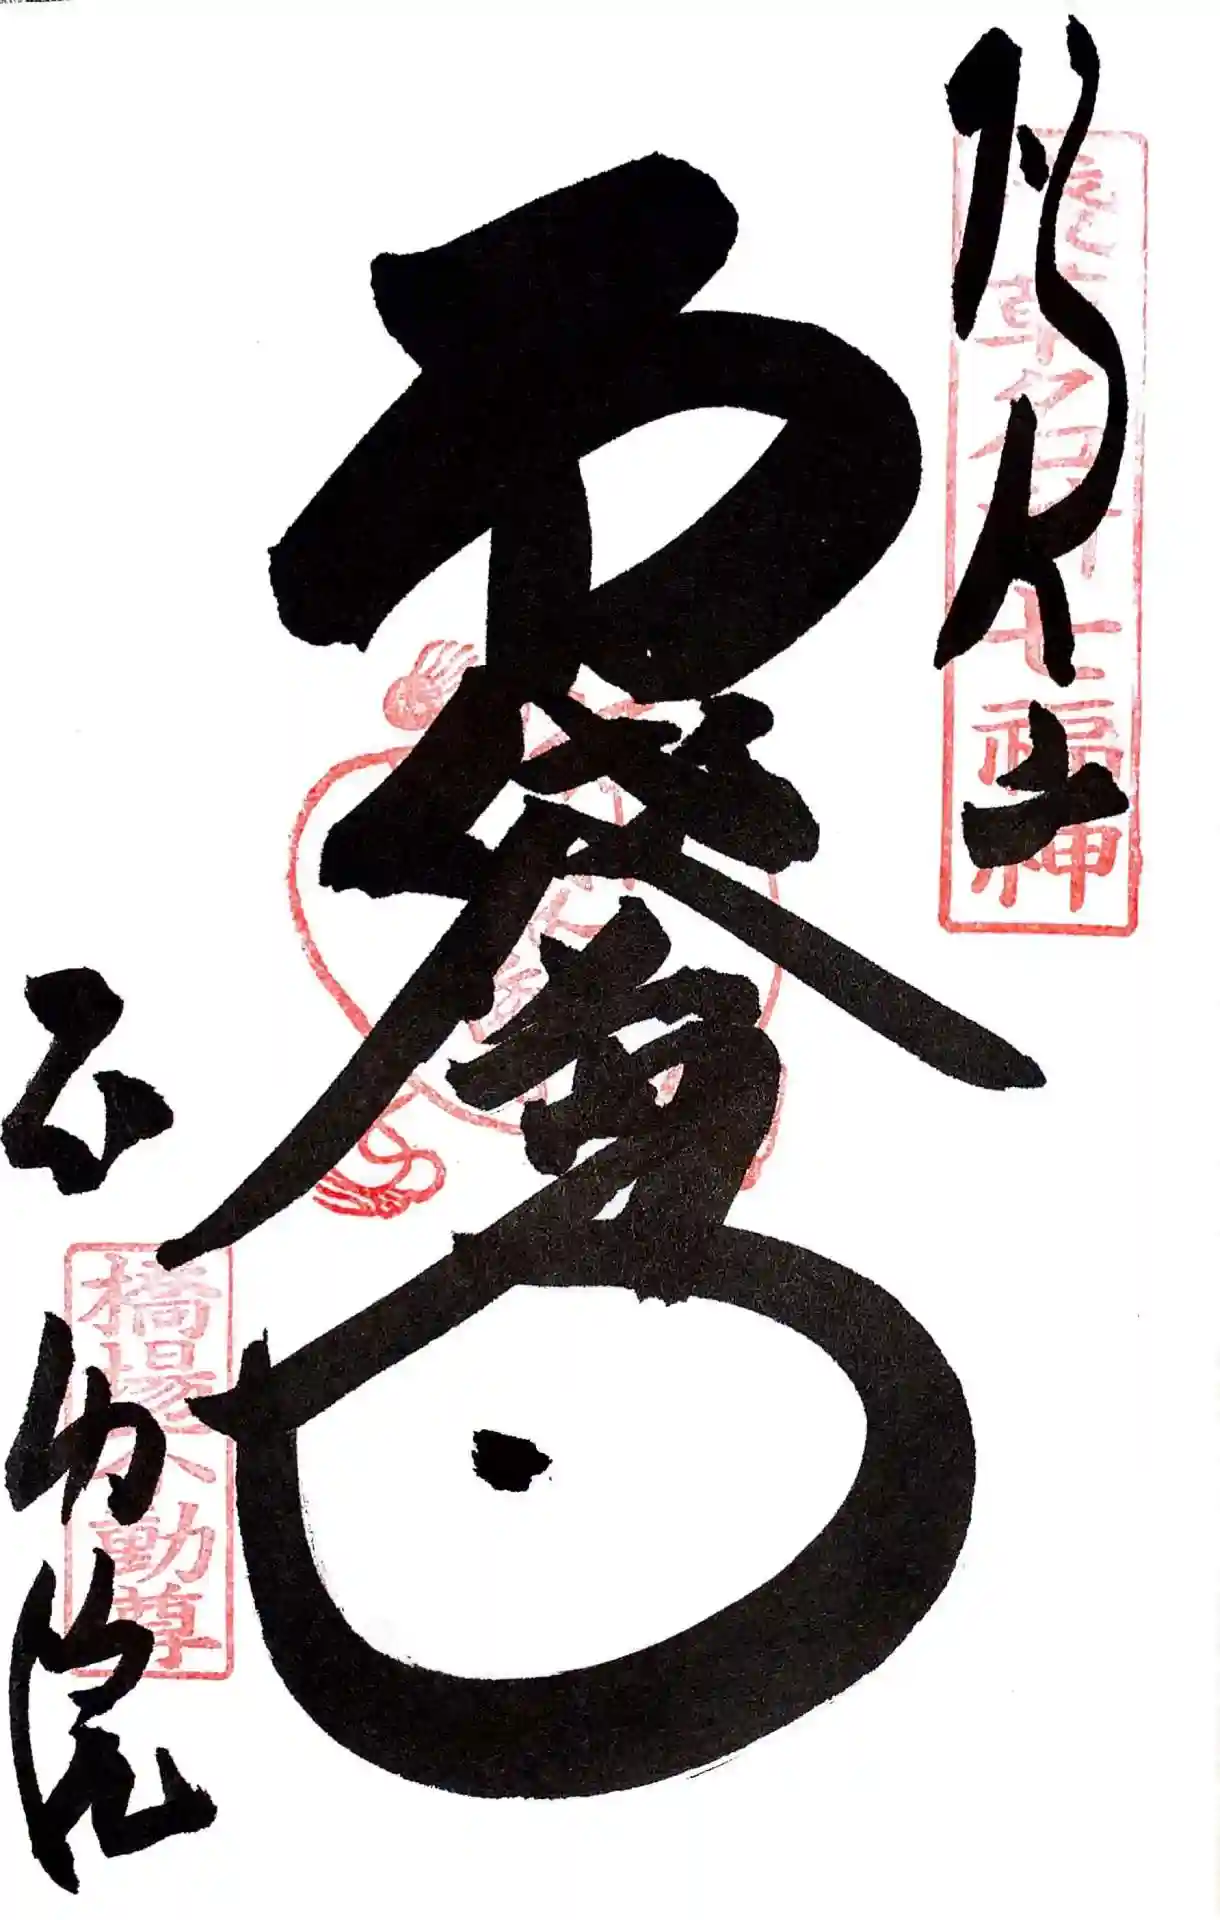 砂尾山
浅草名所七福神
布袋尊
不動院
橋場不動尊